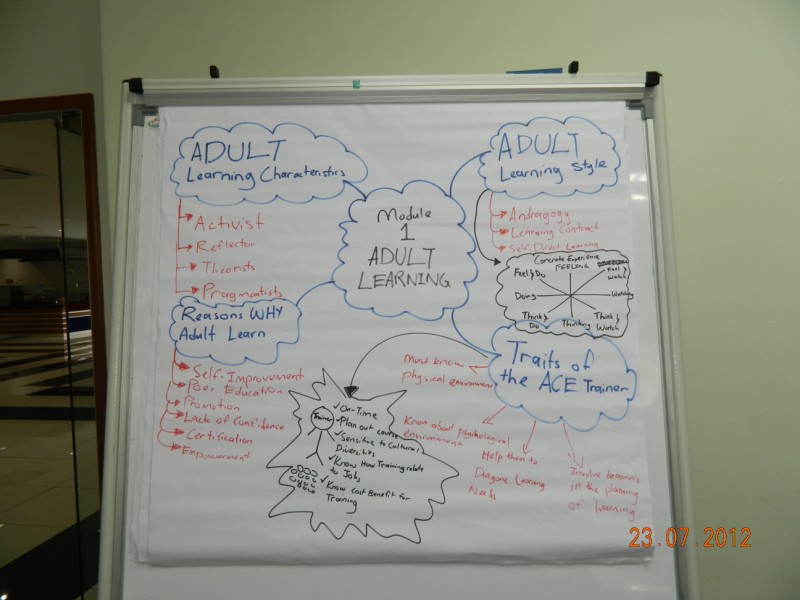 ADULT
Learning Characteristics
Activist
Reflector
Theorists
Pragmatists
Module
1
ADULT
LEARNING
ADULT
Learning Style
Andragogy
Learning Contract
Self-Direct Learning
Concrete Experience
FEELING
Feel & Do
Feel &
Watch
Doing
Watching
Think &
Do
Thinking
Think &
Watch
Reasons WHY
Adult Learn
Self-Improvement
Poor Education
Promotion
Lack of Confidence
Certification
Empowerment
Traits of
the ACE Trainer
Must know
physical environment
Know about psychological
environment
Help them to
Diagone Learning
Needs
Involve learners
in the planning
of learning
Trainer
✓ On-Time
✓ Plan out course
✓ Sensitive to Cultural
Diversities
✓ Know How Training relate
to Jobs
✓ Know Cost Benefit for
Training
23.07.2012